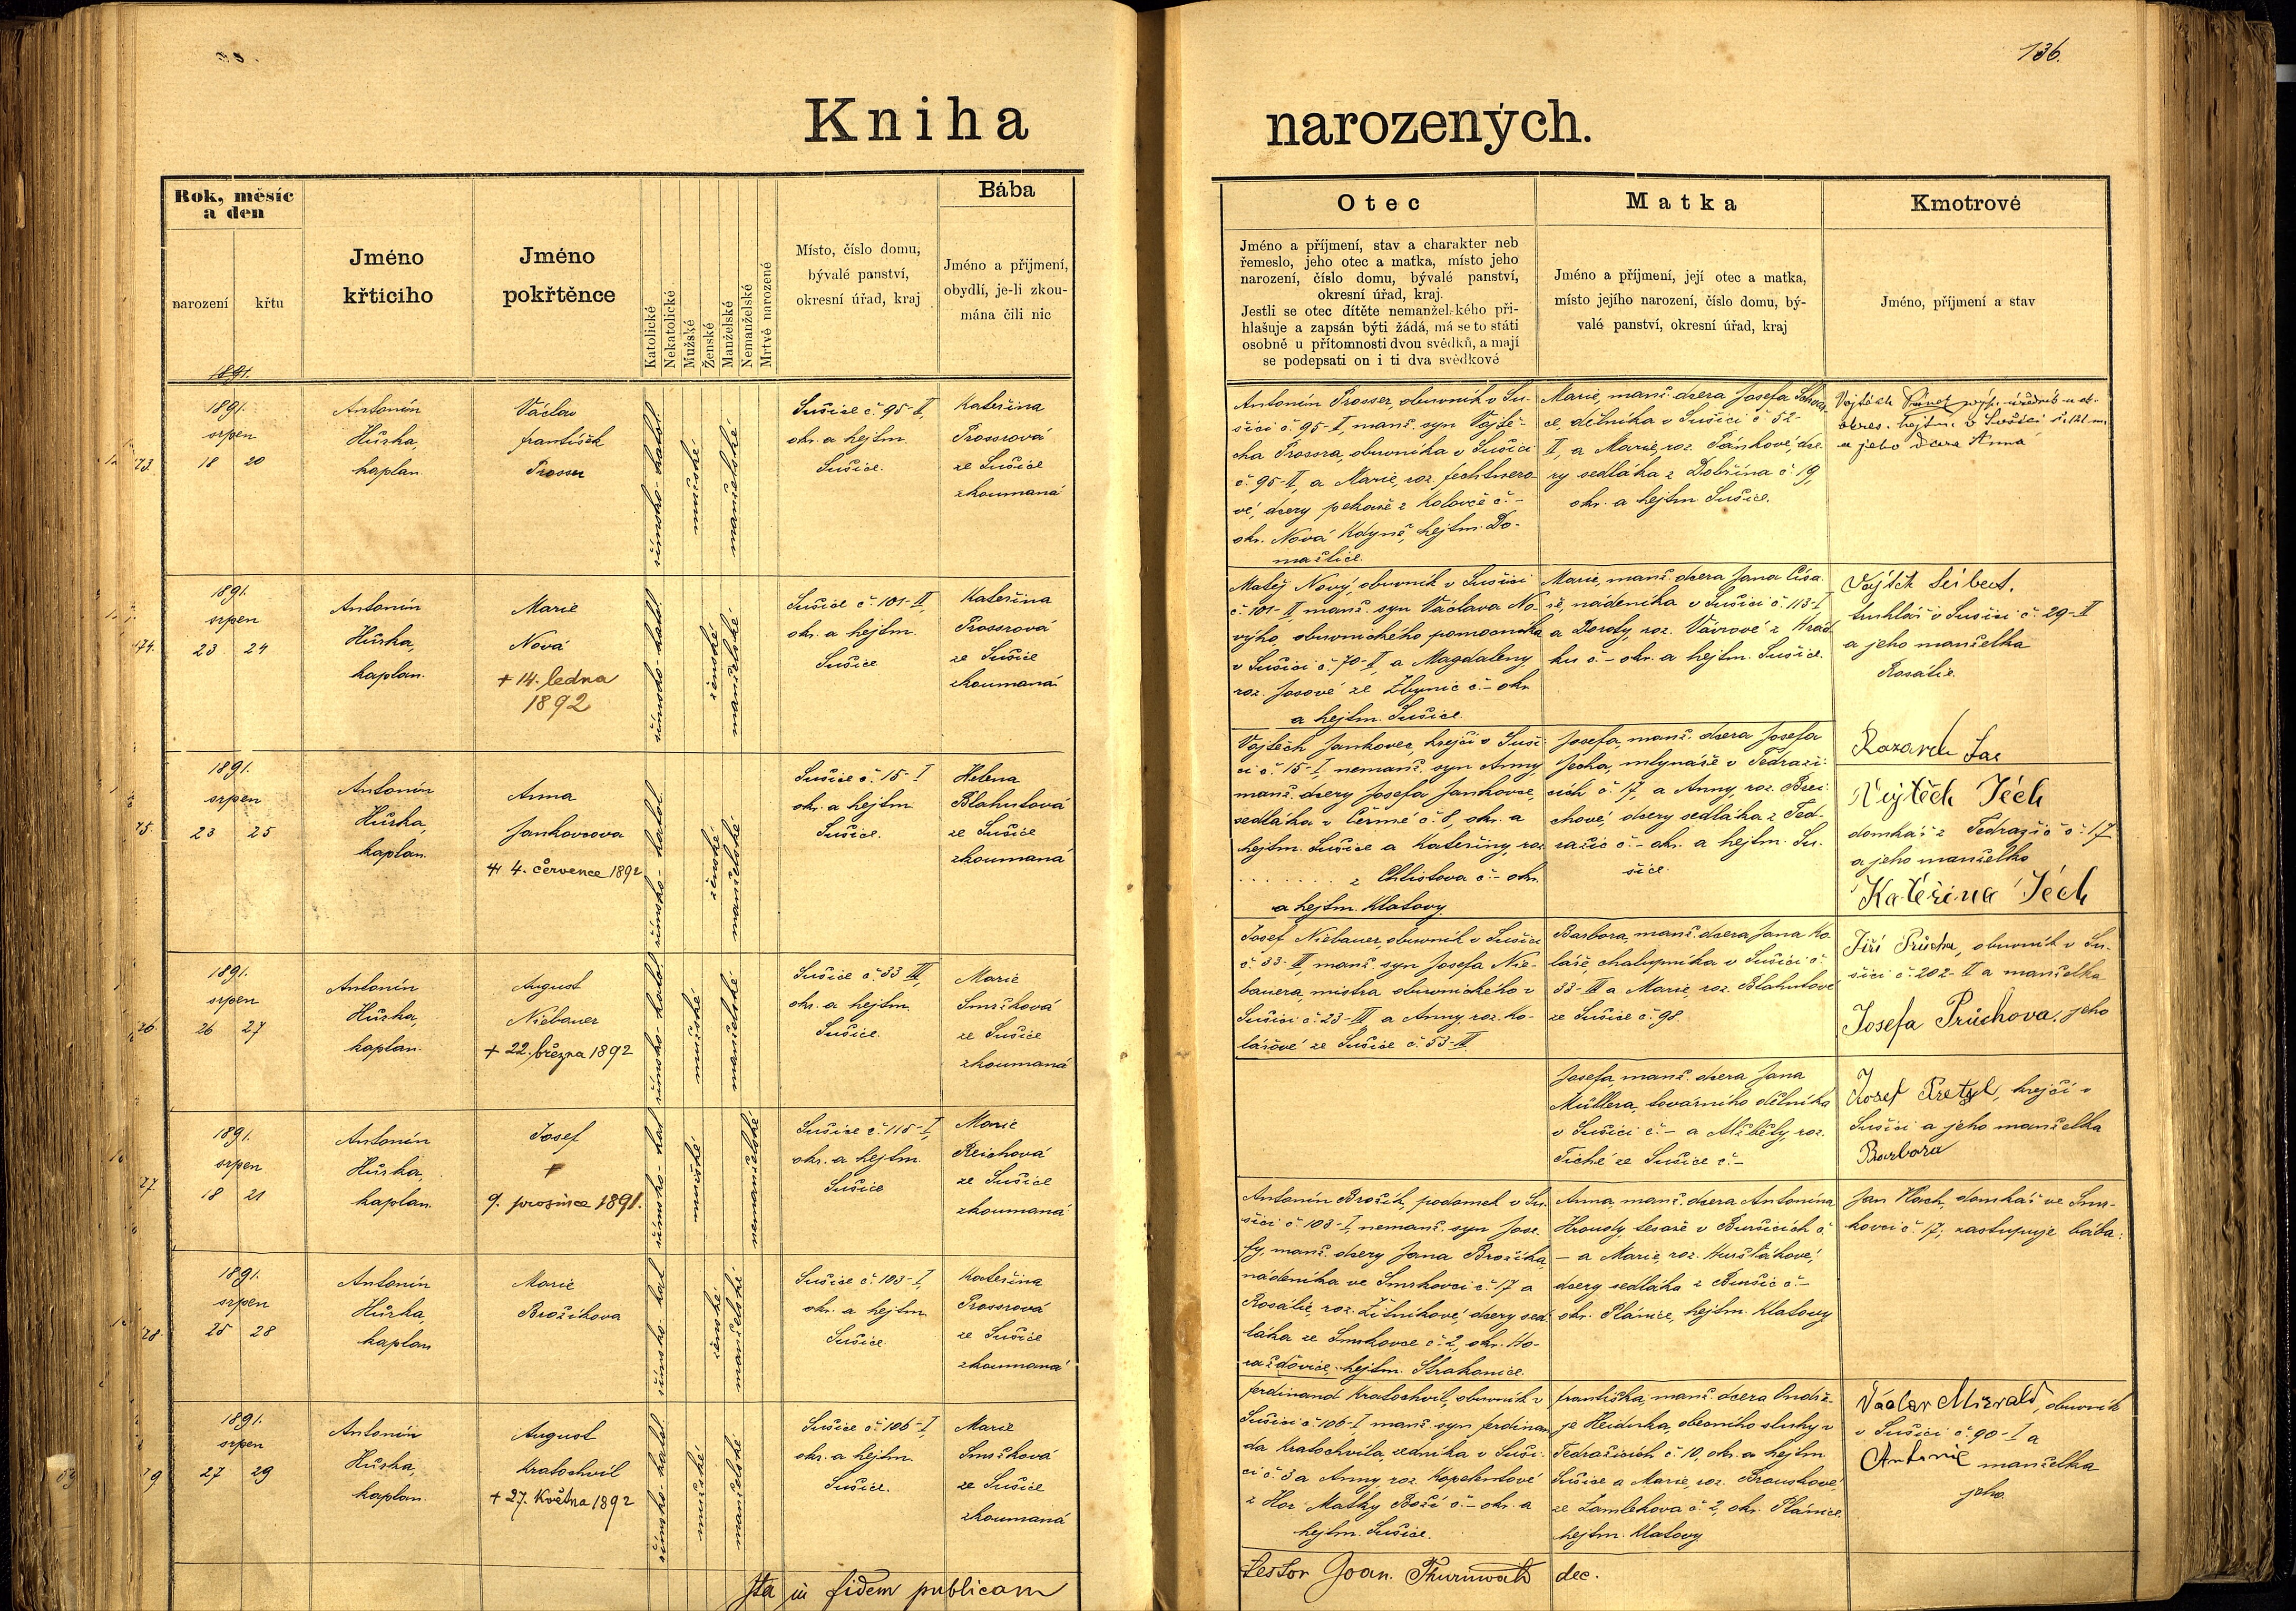 136.
Kniha narozených.
Rok, měsíc
a den
narození
křtu
Jméno
křticiho
Jméno
pokřtěnce
Katolické
Nekatolické
Mužské
Ženské
Manželské
Nemanželské
Mrtvě narozené
Místo, číslo domu,
bývalé panství,
okresní úřad, kraj
Bába
Jméno a přijmení,
obydlí, je-li zkou-
mána čili nic
Otec
Jméno a příjmení, stav a charakter neb
řemeslo, jeho otec a matka, místo jeho
narození, číslo domu, bývalé panství,
okresní úřad, kraj.
Jestli se otec dítěte nemanželského při-
hlašuje a zapsán býti žádá, má se to státi
osobně u přítomnosti dvou svědků, a mají
se podepsati on i ti dva svědkové
Matka
Jméno a příjmení, její otec a matka,
místo jejího narození, číslo domu, bý-
valé panství, okresní úřad, kraj
Kmotrové
Jméno, příjmení a stav
1891.
73.
1891.
srpen
18 20
Antonín
Hůrka,
kaplan.
Václav
František
Prosser
římsko-katol.
mužské
manželské
Sušice č. 95-II,
okr. a hejtm.
Sušice.
Kateřina
Prossrová
ze Sušice
zkoumaná
Antonín Prosser, obuvník v Su-
šici č. 95-II, manž. syn Vojtě-
cha Prossra, obuvníka v Sušici
č. 95-II, a Marie, roz. Fechtnero-
vé, dcery pekaře z Kolovče č. -
okr. Nová Kdyně, hejtm. Do-
mažlice.
Marie, manž. dcera Josefa
dělníka v Sušici č. 52
II, a Marie, roz. Pánkové, dce-
ry sedláka z Dobřína č. 19,
okr. a hejtm. Sušice.
Vojtěch
okres. hejtm. v Sušici
a jeho dcera Anna
74.
1891.
srpen
23 24
Antonín
Hůrka,
kaplan.
Marie
Nová
+ 14. ledna
1892
římsko-katol.
ženské
manželské
Sušice č. 101-II,
okr. a hejtm.
Sušice
Kateřina
Prossrová
ze Sušice
zkoumaná
Matěj Nový, obuvník v Sušici
č. 101-II, manž. syn Václava No-
výho, obuvnického pomocníka
v Sušici č. 70-II, a Magdaleny,
roz. Josové ze Zbynic č. - okr.
a hejtm. Sušice.
Marie, manž. dcera Jana Císa-
ře, nádeníka v Sušici č. 113-I
a Doroty, roz. Vávrové z Hrád-
ku č. - okr. a hejtm. Sušice.
Vojtěch Seibert,
truhlář v Sušici č. 29-II
a jeho manželka
Rosalie.
75.
1891.
srpen
23 25
Antonín
Hůrka,
kaplan.
Anna
Jankovcova
+ 4. července 1892
římsko-katol.
ženské
manželské
Sušice č. 15-I
okr. a hejtm.
Sušice.
Helena
Blahutová
ze Sušice
zkoumaná
Vojtěch Jankovec, krejčí v Suši-
ci č. 15-I, nemanž. syn Anny,
manž. dcery Josefa Jankovce,
sedláka v Čermé č. 8, okr. a
hejtm. Sušice a Kateřiny, roz.
. . . . . . . z Chlistova č. - okr.
a hejtm. Klatovy.
Josefa, manž. dcera Josefa
Jecha, mlynáře v Tedraži-
cích č. 17, a Anny, roz. Brei-
chové, dcery sedláka z Ted-
ražic č. - okr. a hejtm. Su-
šice.
Vojtěch Jéch
domkář z Tedražic č. 17
a jeho manželka
Kateřina Jéch
76.
1891.
srpen
26 27
Antonín
Hůrka,
kaplan.
August
Niebauer
+ 22. března 1892
římsko-katol.
mužské
manželské
Sušice č. 33 III,
okr. a hejtm.
Sušice.
Marie
Smržková
ze Sušice
zkoumaná
Josef Niebauer, obuvník v Sušici
č. 33-III, manž. syn Josefa Nie-
bauera, mistra obuvnického v
Sušici č. 23-III a Anny, roz. Ko-
lářové ze Sušice č. 53-III.
Barbora, manž. dcera Jana Ko-
láře, chalupníka v Sušici č.
33-III a Marie, roz. Blahutové
ze Sušice č. 98.
Jiří Průcha, obuvník v Su-
šici č. 202-II a manželka
Josefa Průchova, jeho
77.
1891.
srpen
18 21
Antonín
Hůrka,
kaplan.
Josef
+
9. prosince 1891.
římsko-kat
mužské
nemanželské
Sušice č. 115-I,
okr. a hejtm.
Sušice
Marie
Reichová
ze Sušice
zkoumaná
Josefa, manž. dcera Jana
Müllera, továrního dělníka
v Sušici č. - a Alžběty, roz.
Tiché ze Sušice č. -
Josef Pretzl, krejčí v
Sušici a jeho manželka
Barbora
78.
1891.
srpen
25 28
Antonín
Hůrka,
kaplan
Marie
Brožíkova
římsko-kat
ženské
manželské
Sušice č. 103-I,
okr. a hejtm.
Sušice.
Kateřina
Prossrová
ze Sušice
zkoumaná
Antonín Brožík, podomek v Su-
šici č. 103-I, nemanž. syn Jose-
fy, manž. dcery Jana Brožíka,
nádeníka ve Smrkovci č. 17 a
Rosálie, roz. Žitníkové, dcery sed-
láka ze Smrkovce č. 2, okr. Ho-
ražďovice, hejtm. Strakonice.
Anna, manž. dcera Antonína
Hrousdy, tesaře v Buršicích č.
- a Marie, roz. Kuršťákové,
dcery sedláka z Buršic č. -
okr. Plánice, hejtm. Klatovy
Jan Vlach, domkář ve Smr-
kovci č. 17; zastupuje bába:
79
1891.
srpen
27 29
Antonín
Hůrka,
kaplan.
August
Kratochvíl
+ 27. Května 1892
římsko-katol.
mužské
manželské
Sušice č. 106-I,
okr. a hejtm.
Sušice.
Marie
Smržková
ze Sušice
zkoumaná
Ferdinand Kratochvíl, obuvník v
Sušici č. 106-I, manž. syn Ferdinan-
da Kratochvíla, zedníka v Suši-
ci č. 3 a Anny, roz. Kopelentové
z Hor Matky Boží č. - okr. a
hejtm. Sušice.
Františka, manž. dcera Ondře-
je Heiduka, obecního sluhy v
Tedražicích č. 10, okr. a hejtm.
Sušice a Marie, roz. Brouskové
ze Zamlekova č. 2, okr. Plánice,
hejtm. Klatovy
Václav Mirvald, obuvník
v Sušici č. 90-I a
Antonie manželka
jeho.
Ita in fidem publicam
testor Joan. Thurnwald dec.